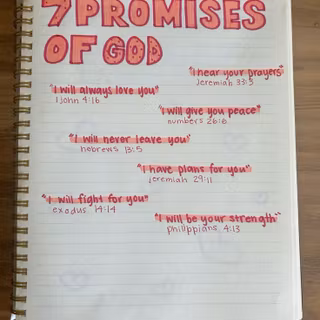 7 PROMISES
OF GOD
"i hear your prayers"
Jeremiah 33:3
"I will always love you"
1 john 4:16
"I will give you peace"
numbers 26:6
"I will never leave you"
hebrews 13:5
"i have plans for you"
jeremiah 29:11
"I will fight for you"
exodus 14:14
"I will be your strength"
philippians 4:13